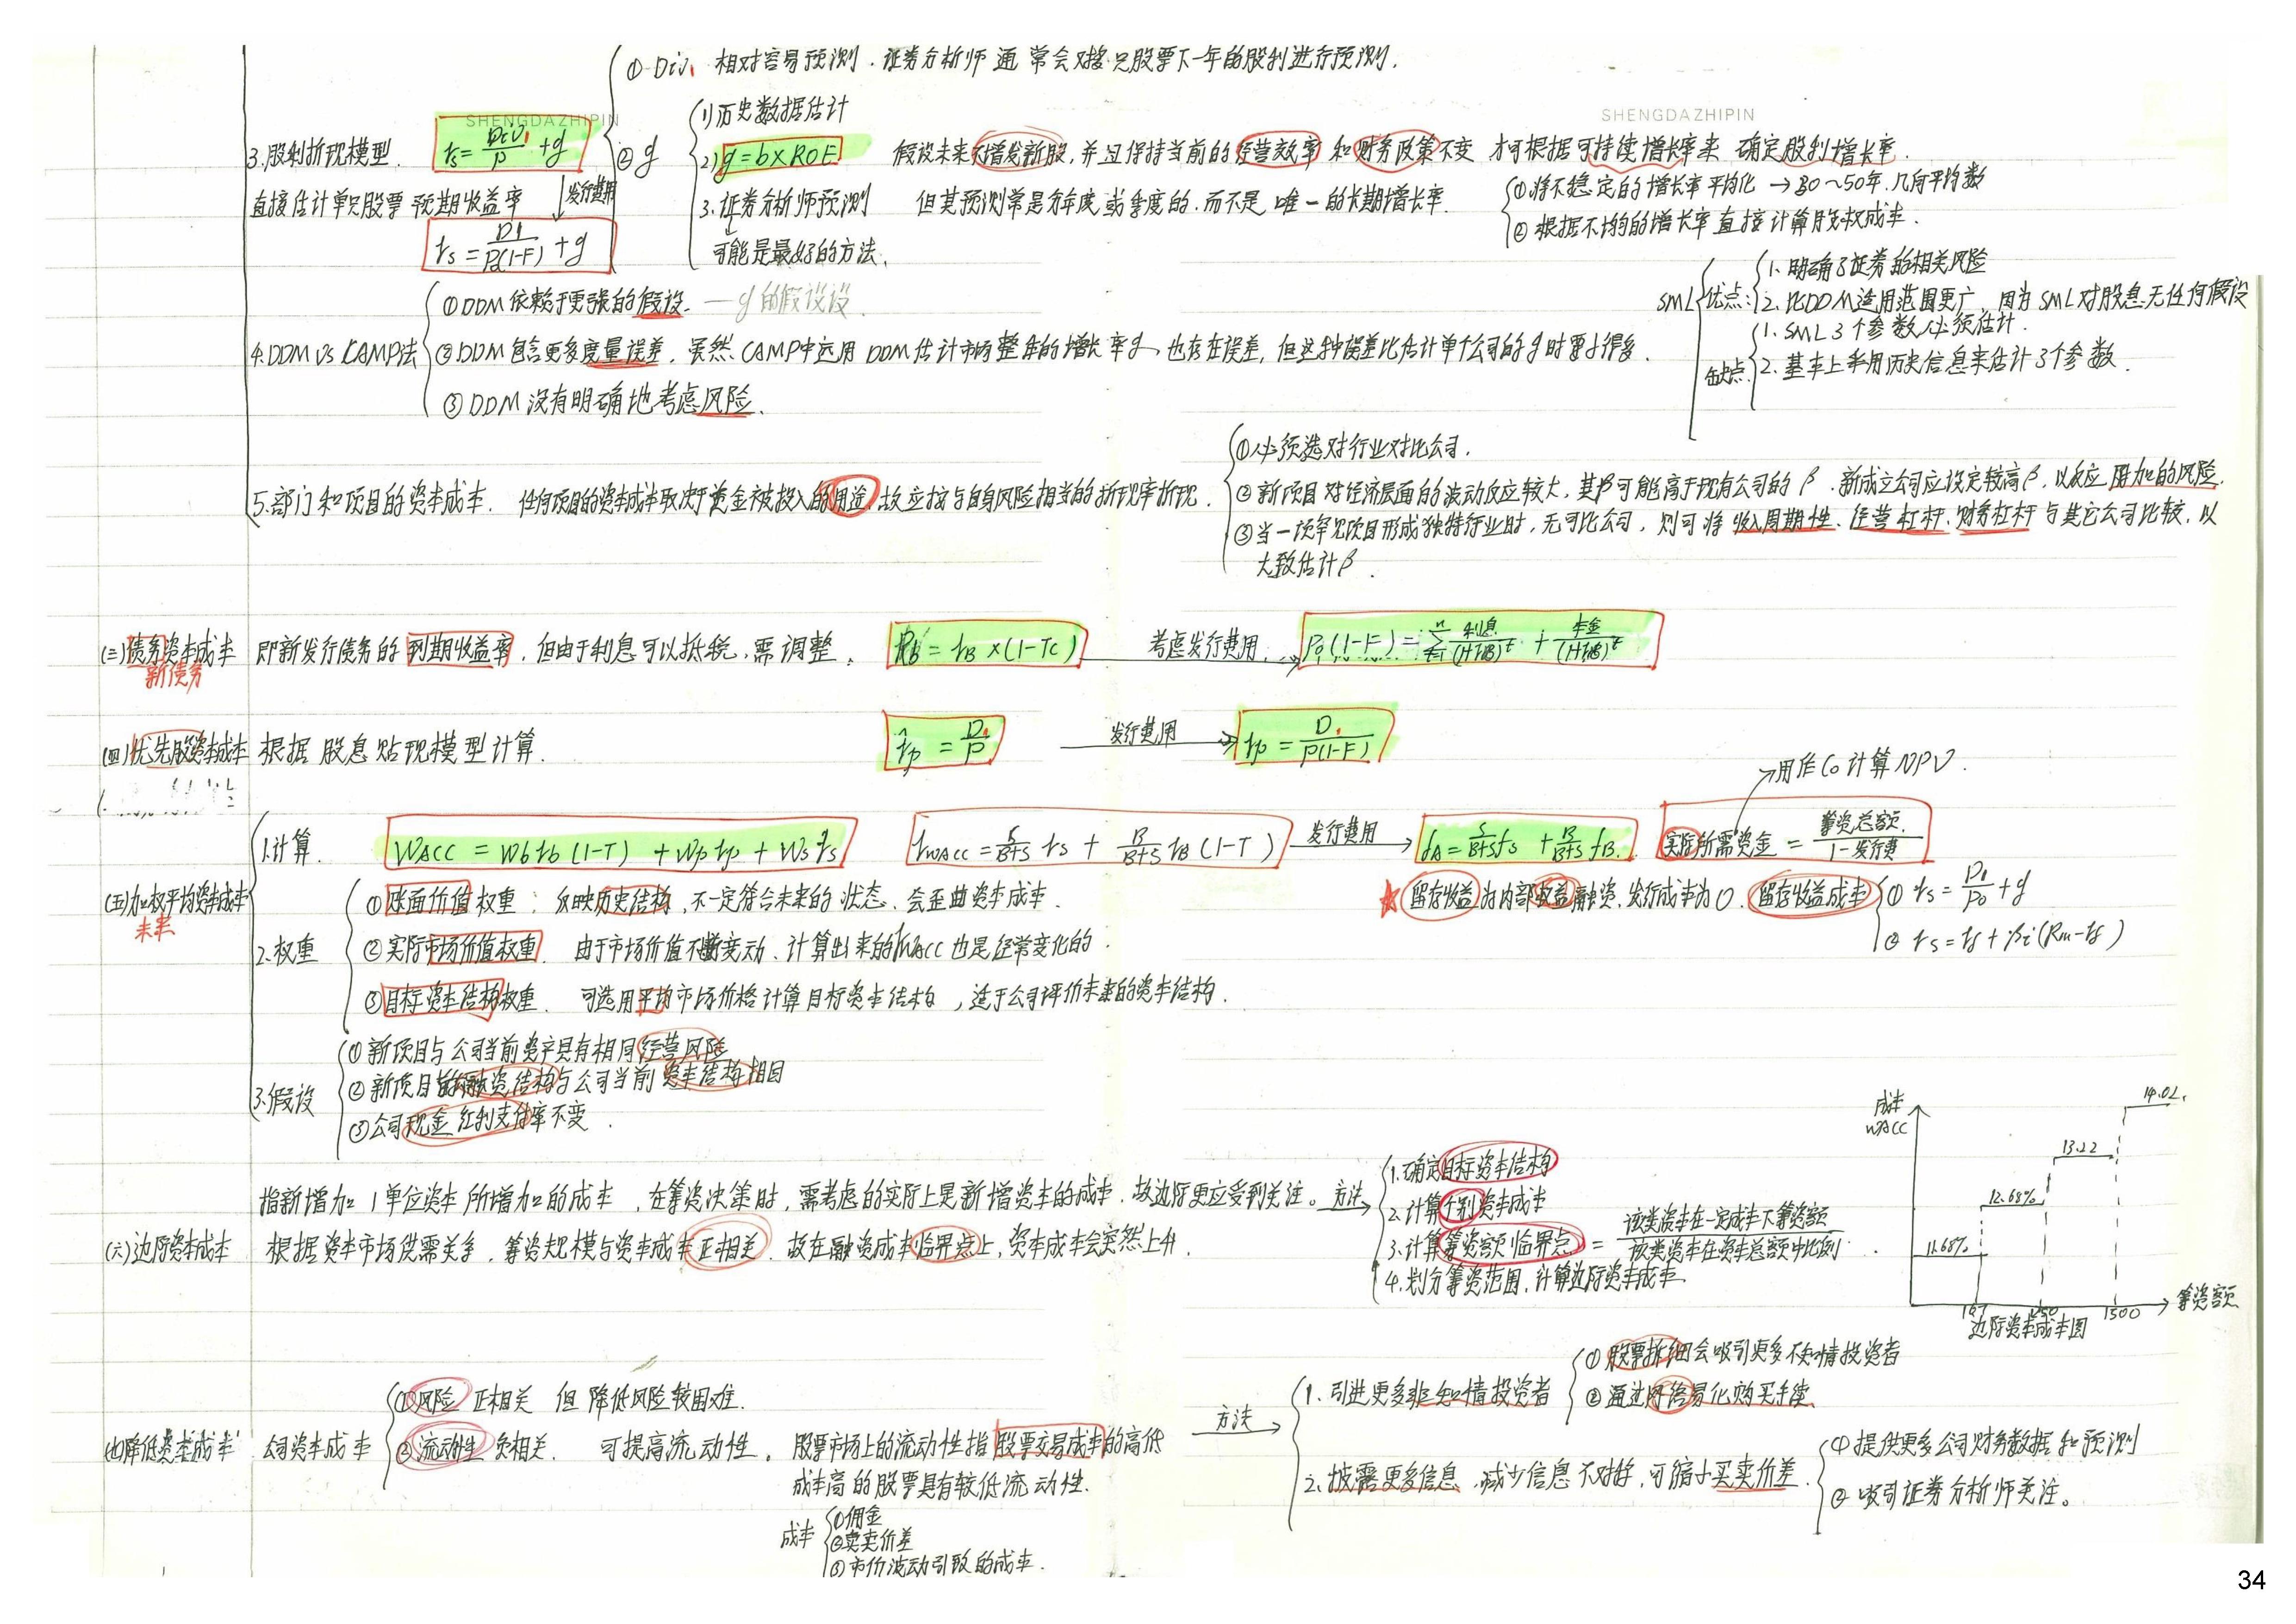 ① Div₁ 相对容易预测．证券分析师通常会对接只股票下一年的股利进行预测．
SHENGDAZHIPIN
SHENGDAZHIPIN
3.股利折现模型． rs = Div₁/P + g
直接估计单只股票预期收益率 ↓发行费用
rs = D1/P0(1-F) + g
② g
1)历史数据估计
2) g = b×ROE 假设未来不增发新股，并且保持当前的经营效率和财务政策不变 才可根据可持续增长率来确定股利增长率．
3.证券分析师预测 但其预测常是分年度或季度的．而不是唯一的长期增长率．
可能是最好的方法、
①将不稳定的增长率平均化 → 30～50年．几何平均数
②根据不均的增长率直接计算股权成本．
4.DDM VS CAMP法
①DDM依赖于更强的假设．—g的假设设
②DDM包含更多度量误差．虽然CAMP中运用DDM估计市场整体的增长率g、也存在误差，但这种误差比估计单个公司的g时要小得多．
③DDM没有明确地考虑风险．
SML
优点：
1、明确了证券的相关风险
2、比DDM适用范围更广，因为SML对股息无任何假设
缺点：
1、SML 3个参数必须估计．
2、基本上采用历史信息来估计3个参数．
5.部门和项目的资本成本． 任何项目的资本成本取决于资金被投入的用途，故应按与自身风险相当的折现率折现．
①必须选对行业对比公司．
②新项目对经济层面的波动反应较大，其β可能高于现有公司的β．新成立公司应设定较高β，以反应附加的风险．
③当一项罕见项目形成独特行业时，无可比公司，则可将收入周期性、经营杠杆、财务杠杆与其它公司比较，以
大致估计β．
(三)债务资本成本 即新发行债务的到期收益率，但由于利息可以抵税，需调整． Rb = rB×(1-Tc) 考虑发行费用．→ P0(1-F) = Σ 利息/(1+rB)^t + 本金/(1+rB)^t
新债务
(四)优先股资本成本 根据股息贴现模型计算． rp = D₁/P 发行费用→ rp = D₁/P(1-F)
(五)加权平均资本成本
未来
1.计算． WACC = Wb rb (1-T) + Wp rp + Ws rs rWACC = S/B+S rs + B/B+S rB (1-T) 发行费用→ fA = S/B+S fs + B/B+S fB． 实际所需资金 = 筹资总额/1-发行费
↗用作C0计算NPV．
★ 留存收益为内部权益融资，发行成本为0． 留存收益成本
① rs = D1/P0 + g
② rs = rf + βi(Rm-rf)
2.权重
①账面价值权重：反映历史结构、不一定符合未来的状态、会歪曲资本成本．
②实际市场价值权重． 由于市场价值不断变动．计算出来的rWACC也是经常变化的．
③目标资本结构权重． 可选用平均市场价格计算目标资本结构，适于公司评价未来的资本结构．
3.假设
①新项目与公司当前资产具有相同经营风险
②新项目的融资结构与公司当前资本结构相同
③公司现金红利支付率不变．
(六)边际资本成本
指新增加1单位资本所增加的成本，在筹资决策时，需考虑的实际上是新增资本的成本．故边际更应受到关注。方法→
根据资本市场供需关系，筹资规模与资本成本正相关．故在融资成本临界点上，资本成本会突然上升．
1.确定目标资本结构
2.计算个别资本成本
3.计算筹资额临界点 = 该类资本在一定成本下筹资额/该类资本在资本总额中比例．
4.划分筹资范围，计算边际资本成本
成本
WACC
11.68%
12.68%
13.22
14.02
1500
筹资额
边际资本成本图
(七)降低资本成本 公司资本成本
①风险 正相关 但降低风险较困难．
②流动性 负相关． 可提高流动性。 股票市场上的流动性指股票交易成本的高低
成本高的股票具有较低流动性．
成本
①佣金
②买卖价差
③市价波动引致的成本．
方法→
1、引进更多非知情投资者
①股票拆细会吸引更多不知情投资者
②通过网络易化购买手续、
2、披露更多信息、减少信息不对称，可缩小买卖价差．
①提供更多公司财务数据和预测
②吸引证券分析师关注。
34